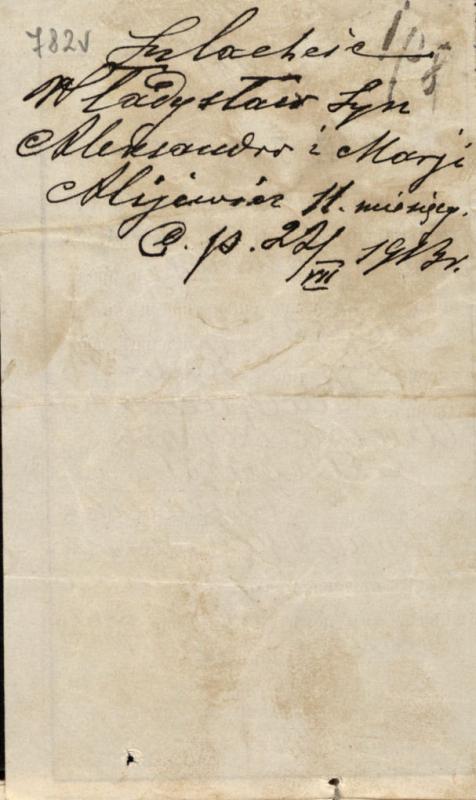 782v
108
Szlachcic
Władysław Syn
Aleksandra i Marji
11. miesięcy.
C. p. 22/VII 1913r.